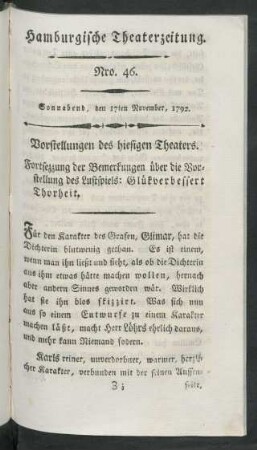 Hamburgische Theaterzeitung.
Nro. 46.
Sonnabend, den 17ten November, 1792.
Vorstellungen des hiesigen Theaters.
Fortsezzung der Bemerkungen über die Vor-
stellung des Lustspiels: Glükverbessert
Thorheit.
Für den Karakter des Grafen, Glimar, hat die
Dichterin blutwenig gethan. Es ist einem,
wenn man ihn ließt und sieht, als ob die Dichterin
aus ihm etwas hätte machen wollen, hernach
aber andern Sinnes geworden wär. Wirklich
hat sie ihn blos skizzirt. Was sich nun
aus so einem Entwurfe zu einem Karakter
machen läßt, macht Herr Löhrs ehrlich daraus,
und mehr kann Niemand fodern.
Karls reiner, unverdorbner, warmer, herzli-
cher Karakter, verbunden mit der feinen Aussen-
Z z
seite,